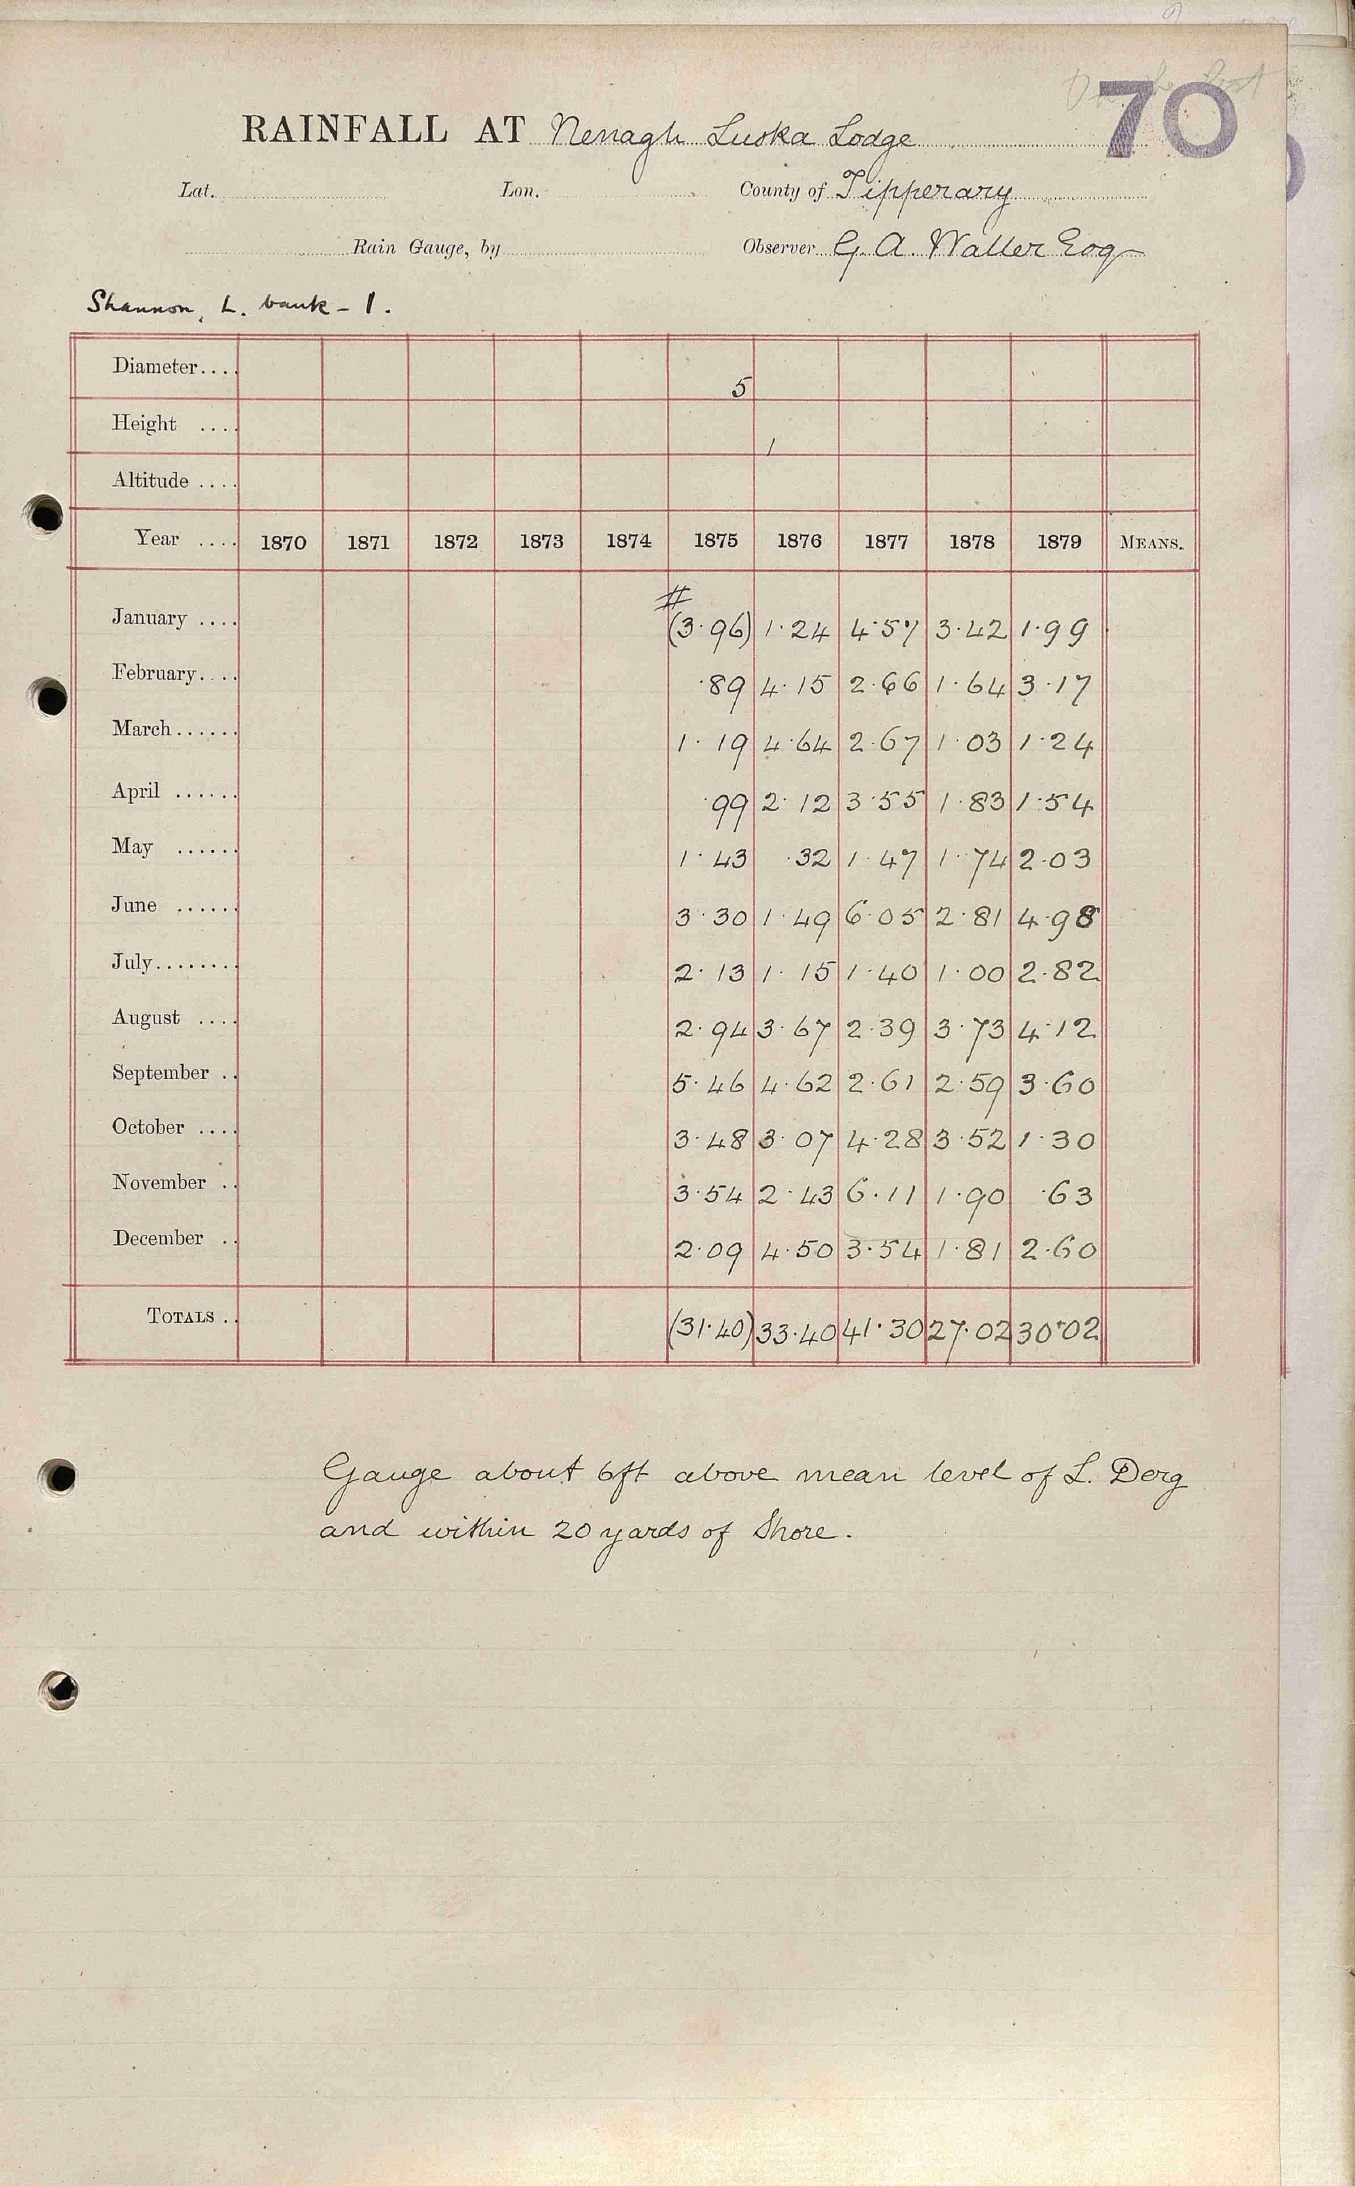 70
RAINFALL AT Nenagh Luska Lodge
Lat. Lon. County of Tipperary
Rain Gauge, by Observer G. A. Waller Esq
Shannon, L. bank - 1.
Diameter.... 5
Height .... 1
Altitude ....
Year .... 1870 1871 1872 1873 1874 1875 1876 1877 1878 1879 MEANS.
#
January .... (3.96) 1.24 4.57 3.42 1.99
February.... .89 4.15 2.66 1.64 3.17
March...... 1.19 4.64 2.67 1.03 1.24
April ...... .99 2.12 3.55 1.83 1.54
May ...... 1.43 .32 1.47 1.74 2.03
June ...... 3.30 1.49 6.05 2.81 4.98
July........ 2.13 1.15 1.40 1.00 2.82
August .... 2.94 3.67 2.39 3.73 4.12
September .. 5.46 4.62 2.61 2.59 3.60
October .... 3.48 3.07 4.28 3.52 1.30
November .. 3.54 2.43 6.11 1.90 .63
December .. 2.09 4.50 3.54 1.81 2.60
TOTALS .. (31.40) 33.40 41.30 27.02 30.02
Gauge about 6ft above mean level of L. Derg
and within 20 yards of Shore.